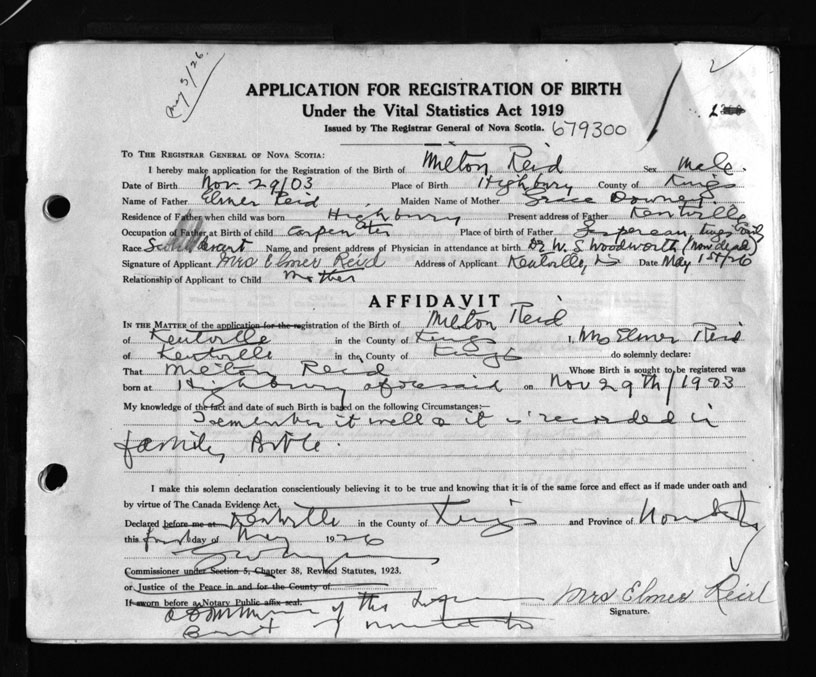 May 3/26.
APPLICATION FOR REGISTRATION OF BIRTH
Under the Vital Statistics Act 1919
Issued by The Registrar General of Nova Scotia. 679300
TO THE REGISTRAR GENERAL OF NOVA SCOTIA:
I hereby make application for the Registration of the Birth of Milton Reid Sex Male.
Date of Birth Nov. 29/03 Place of Birth Highbury County of Kings
Name of Father Elmer Reid Maiden Name of Mother Grace
Residence of Father when child was born Highbury Present address of Father Kentville
Occupation of Father at Birth of child Carpenter Place of birth of Father
Race Name, and present address of Physician in attendance at birth. Dr W. S. Woodworth (now dead)
Signature of Applicant Mrs Elmer Reid Address of Applicant Kentville, NS Date May 1st/26
Relationship of Applicant to Child Mother
AFFIDAVIT
IN THE MATTER of the application for registration of the Birth of Milton Reid
of Kentville in the County of Kings I, Mrs Elmer Reid
of Kentville in the County of Kings do solemnly declare:
That Milton Reid Whose Birth is sought to be registered was
born at Highbury aforesaid on Nov 29th/1903
My knowledge of the fact and date of such Birth is based on the following Circumstances:—
I remember it well & it is recorded in
family Bible.
I make this solemn declaration conscientiously believing it to be true and knowing that it is of the same force and effect as if made under oath and
by virtue of The Canada Evidence Act.
Declared before me at Kentville in the County of Kings and Province of Nova Scotia
this first day of May 1926
Commissioner under Section 5, Chapter 38, Revised Statutes, 1923.
or Justice of the Peace in and for the County of
If sworn before a Notary Public affix seal.
of the Supreme
Court of Nova Scotia
Mrs Elmer Reid
Signature.